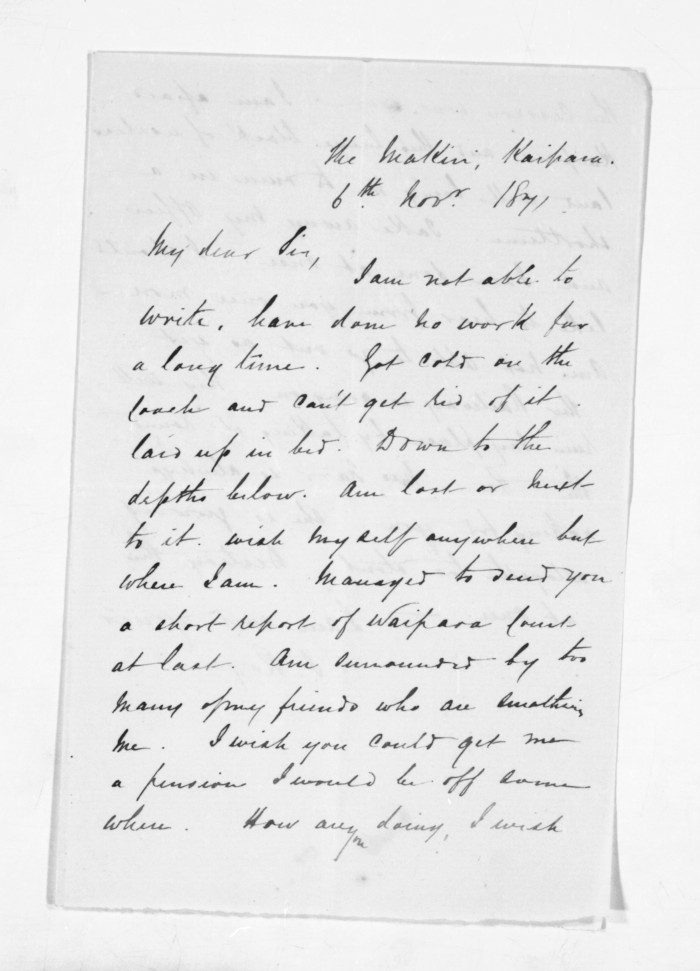 The Makiri, Kaipara.
6th Novr. 1871.
My dear Sir,
I am not able to
write, have done no work for
a long time. Got cold on the
coach and can't get rid of it.
laid up in bed. Down to the
depths below. Am lost or next
to it. wish myself anywhere but
where I am. Managed to send you
a short report of Waipara Court
at last. Am surrounded by too
many of my friends who are smothering
me. I wish you could get me
a pension I would be off some
where. How are you doing, I wish